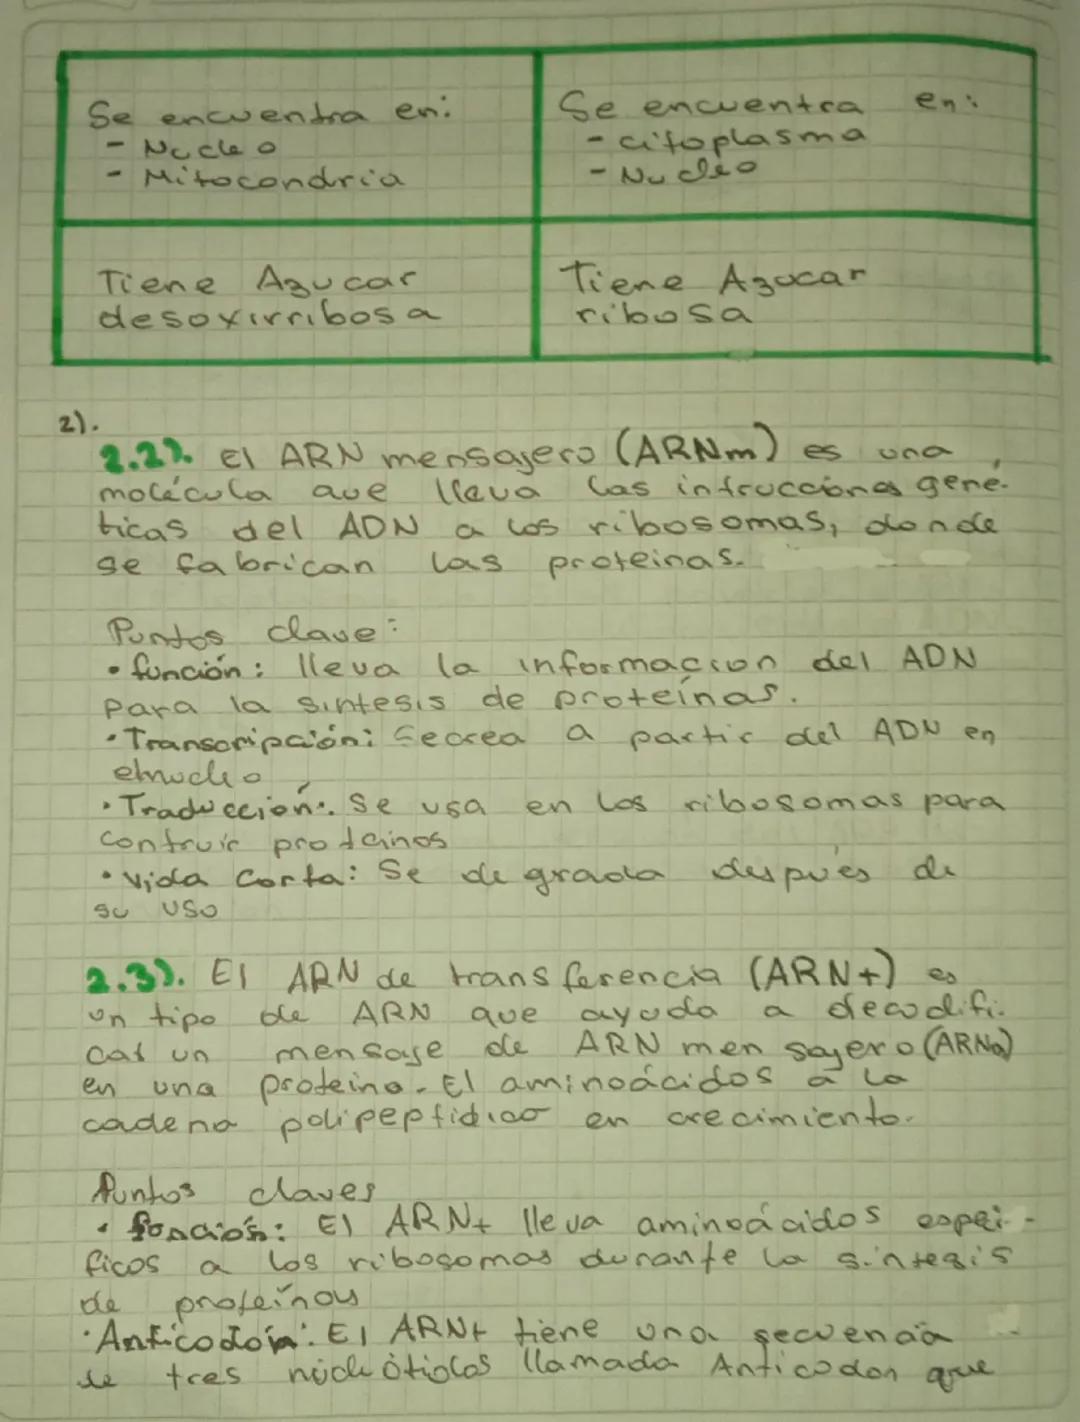 Se encuentra en:
- Nucleo
- Mitocondria
Se encuentra en:
- citoplasma
- Nucleo
Tiene Azucar
desoxirribosa
Tiene Azucar
ribosa
2).
2.2). El ARN mensajero (ARNm) es una
molécula que lleva las intrucciones gené-
ticas del ADN a los ribosomas, donde
se fabrican las proteinas.
Puntos clave:
• función: lleva la informacion del ADN
para la sintesis de proteínas.
• Transcripción: Se crea a partir del ADN en
el nucleo
• Traducción: Se usa en los ribosomas para
contruir proteinas
• Vida Corta: Se degrada después de
su uso
2.3). El ARN de transferencia (ARNt) es
un tipo de ARN que ayuda a decodifi-
car un mensaje de ARN mensajero (ARNm)
en una proteina. El aminoácidos a la
cadena polipeptidica en crecimiento.
Puntos claves
• función: El ARNt lleva aminoácidos especi-
ficos a los ribosomas durante la sintesis
de proteínas
• Anticodón: El ARNt tiene una secuencia
de tres nucleótidos llamada Anticodon que